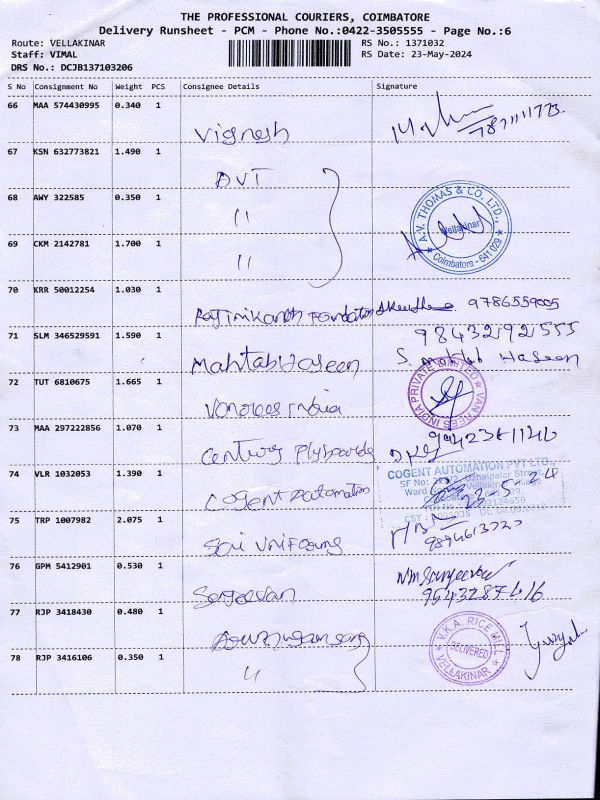 THE PROFESSIONAL COURIERS, COIMBATORE
Delivery Runsheet - PCM - Phone No.:0422-3505555 - Page No.:6
Route: VELLAKINAR
RS No.: 1371032
Staff: VIMAL
RS Date: 23-May-2024
DRS No.: DCJB137103206
S No Consignment No Weight PCS Consignee Details Signature
66 MAA 574430995 0.340 1 Vignesh
67 KSN 632773821 1.490 1 DVT
68 AWY 322585 0.350 1 "
A.V. THOMAS & CO. LTD.,
Vellakinar
Coimbatore - 641 029
69 CKM 2142781 1.700 1 "
70 KRR 50012254 1.030 1 Rajinikanth Foundation 9786559005
71 SLM 346529591 1.590 1 Mahtab Haseen
S. Haseen
72 TUT 6810675 1.665 1 Vanrees india
VAN REES INDIA PRIVATE LIMITED
73 MAA 297222856 1.070 1 Century Plyboards
74 VLR 1032053 1.390 1 Cogent Automation
COGENT AUTOMATION PVT LTD.,
75 TRP 1007982 2.075 1 Sai Uniforms
76 GPM 5412901 0.530 1 Sanjeevan
77 RJP 3418430 0.480 1
V.K.A. RICE MILL
DELIVERED
VELLAKINAR
78 RJP 3416106 0.350 1 "